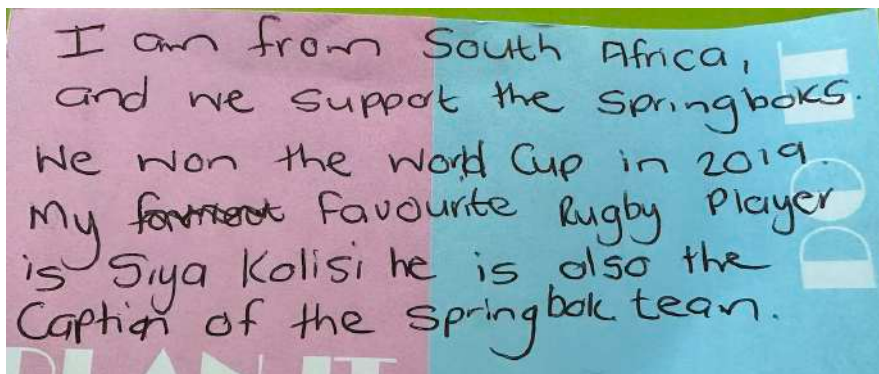 I am from South Africa,
and we support the springboks.
We won the World Cup in 2019.
My favourite Rugby Player
is Siya Kolisi he is also the
Caption of the springbok team.
PLAN IT
DO IT